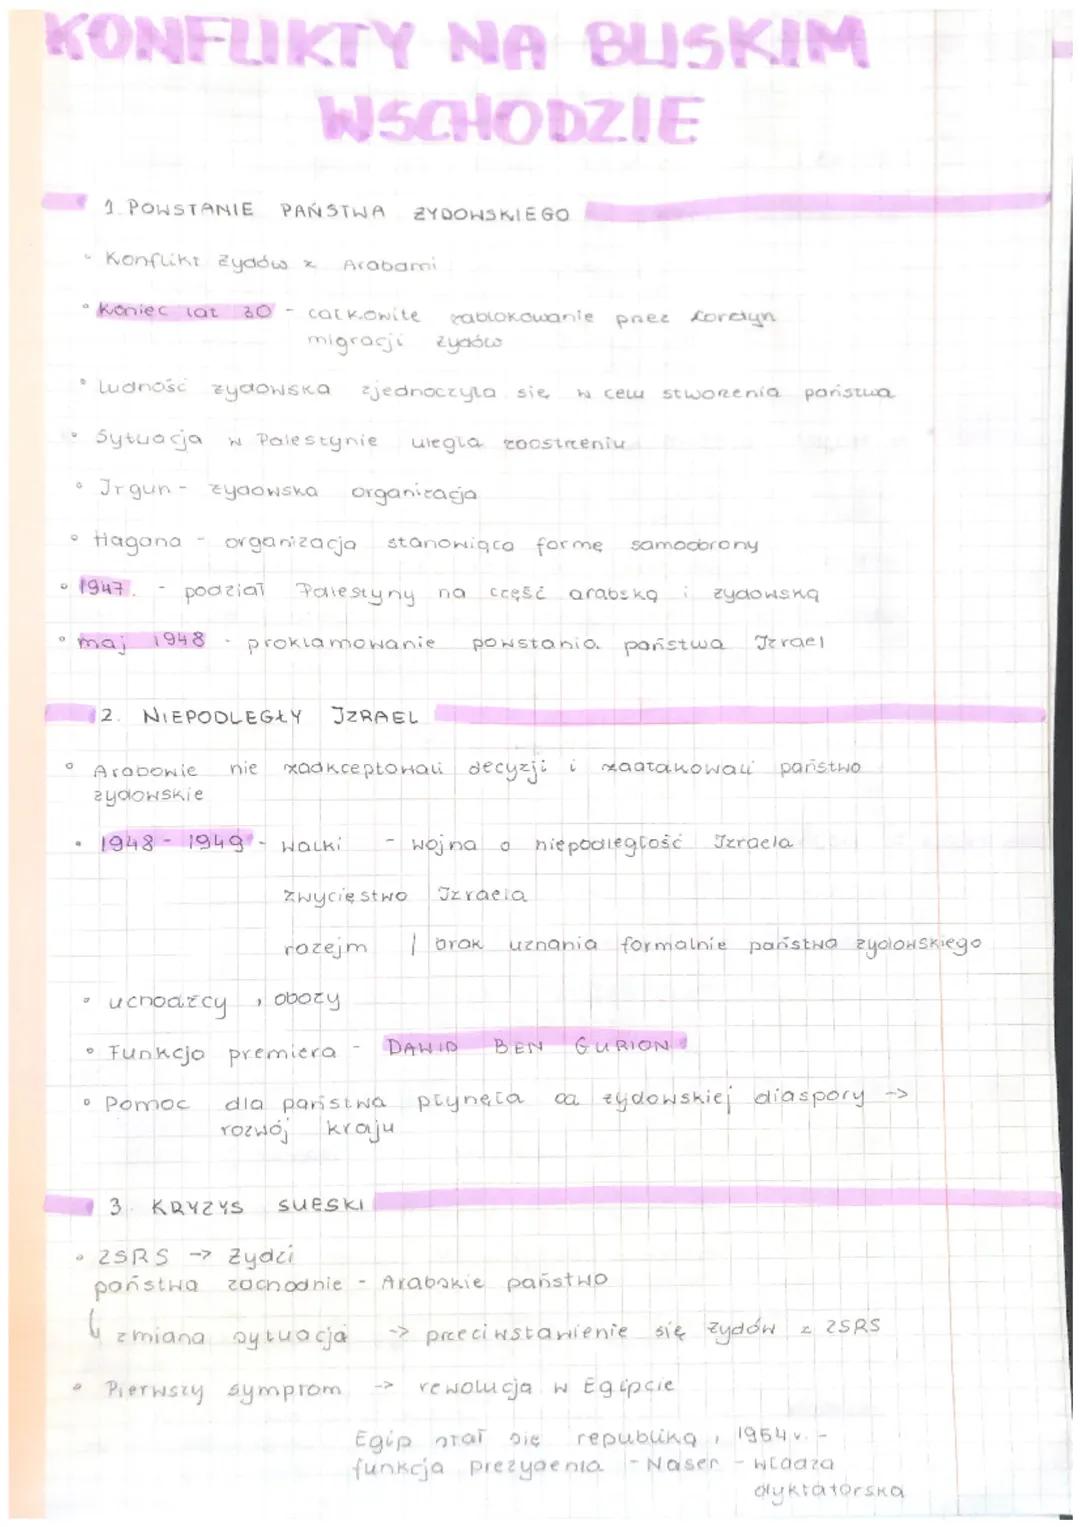 KONFLIKTY NA BLISKIM
WSCHODZIE
1. POWSTANIE PAŃSTWA ŻYDOWSKIEGO
Konflikt Żydów z Arabami
Koniec lat 30 - całkowite zablokowanie przez Londyn
migracji żydów
Ludność żydowska zjednoczyła się w celu stworzenia państwa
Sytuacja w Palestynie uległa zaostrzeniu
Irgun - żydowska organizacja
Hagana - organizacja stanowiąca formę samoobrony
1947. - podział Palestyny na część arabską i żydowską
maj 1948 - proklamowanie powstania państwa Izrael
2. NIEPODLEGŁY IZRAEL
Arabowie nie zaakceptowali decyzji i zaatakowali państwo
żydowskie
1948 - 1949 - walki - wojna o niepodległość Izraela
zwycięstwo Izraela
rozejm / brak uznania formalnie państwa żydowskiego
uchodźcy, obozy
Funkcja premiera - DAWID BEN GURION
Pomoc dla państwa płynęła od żydowskiej diaspory ->
rozwój kraju
3. KRYZYS SUESKI
ZSRS -> Żydzi
państwa zachodnie - Arabskie państwo
zmiana sytuacja -> przeciwstawienie się żydów z ZSRS
Pierwszy symptom -> rewolucja w Egipcie
Egip stał się republiką, 1954 r. -
funkcja prezydenta - Naser - władza
dyktatorska